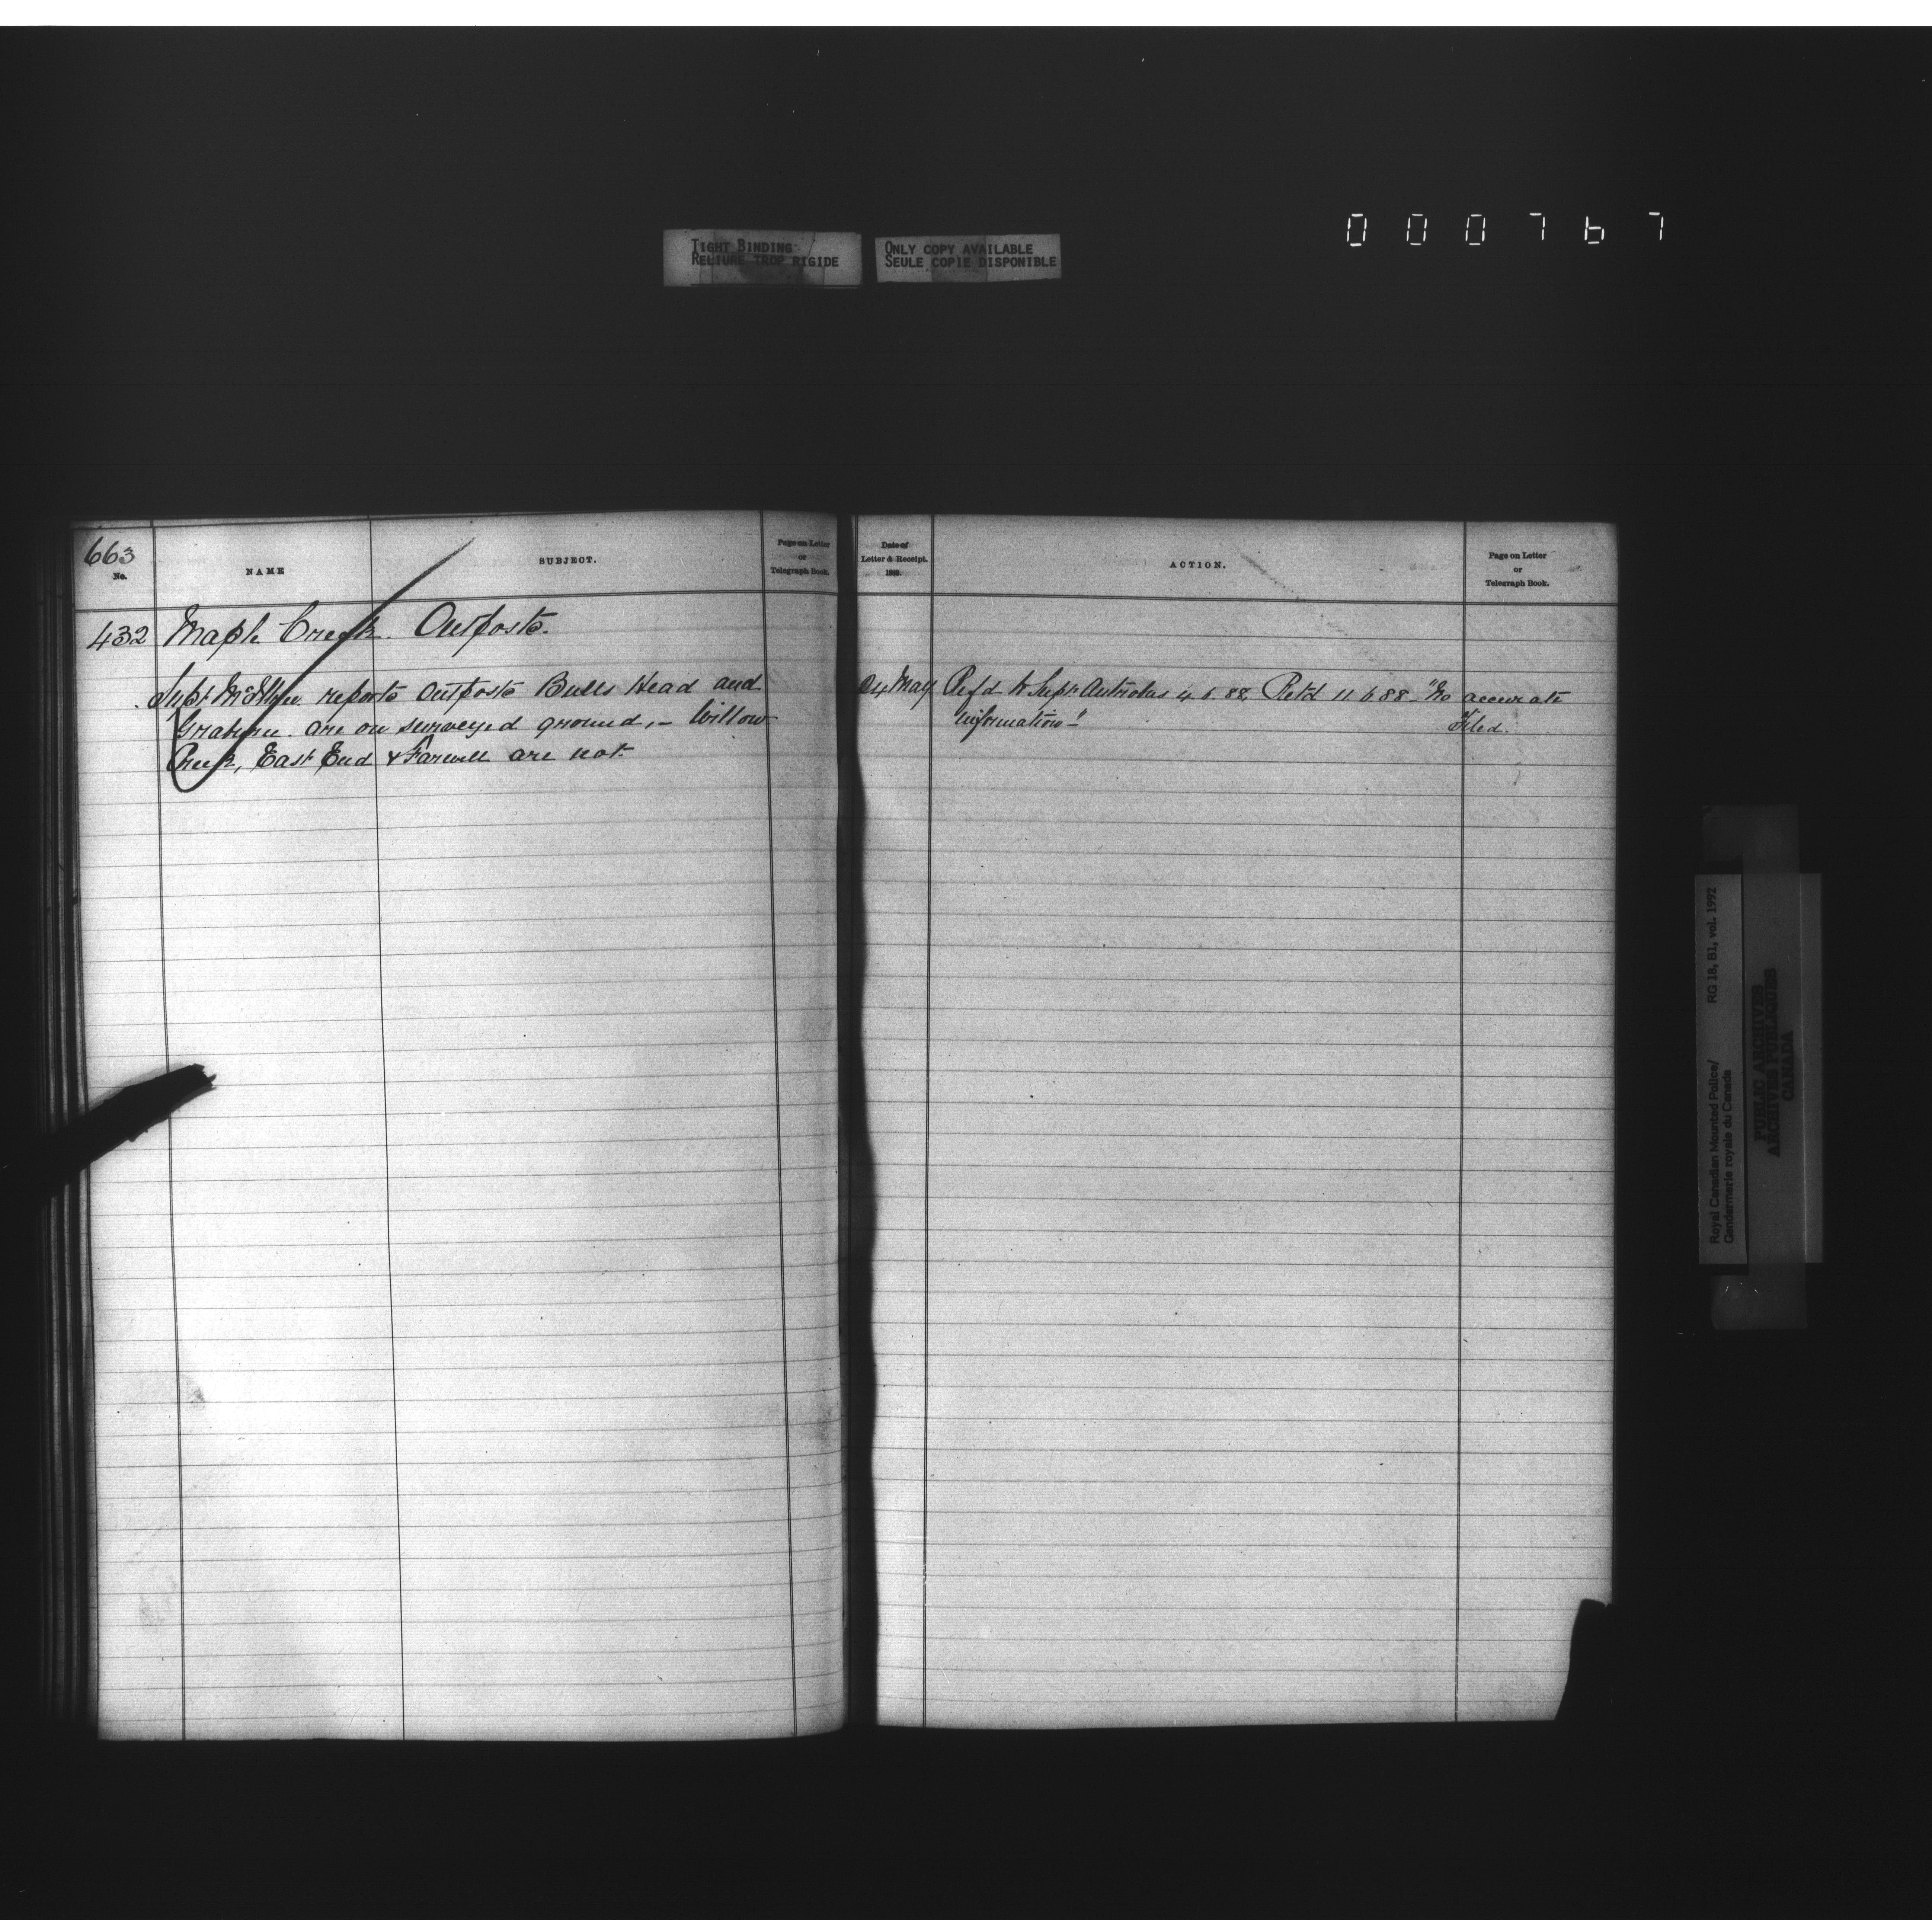 TIGHT BINDING
RELIURE TROP RIGIDE
ONLY COPY AVAILABLE
SEULE COPIE DISPONIBLE
000767
663
No.
NAME
SUBJECT.
Page on Letter
or
Telegraph Book.
Date of
Letter & Receipt.
188
ACTION.
Page on Letter
or
Telegraph Book.
432 Maple Creek. Outposts.
Supt McIllree reports Outposts Bulls Head and
Graburn are on surveyed ground, - Willow
Creek, East End & Farwell are not.
24 May Refd to Supt Antrobus 4.6.88, Retd 11.6.88 - "No accurate
information"
Filed.
Royal Canadian Mounted Police/
Gendarmerie royale du Canada
RG 18, B1, vol. 1992
PUBLIC ARCHIVES
ARCHIVES PUBLIQUES
CANADA